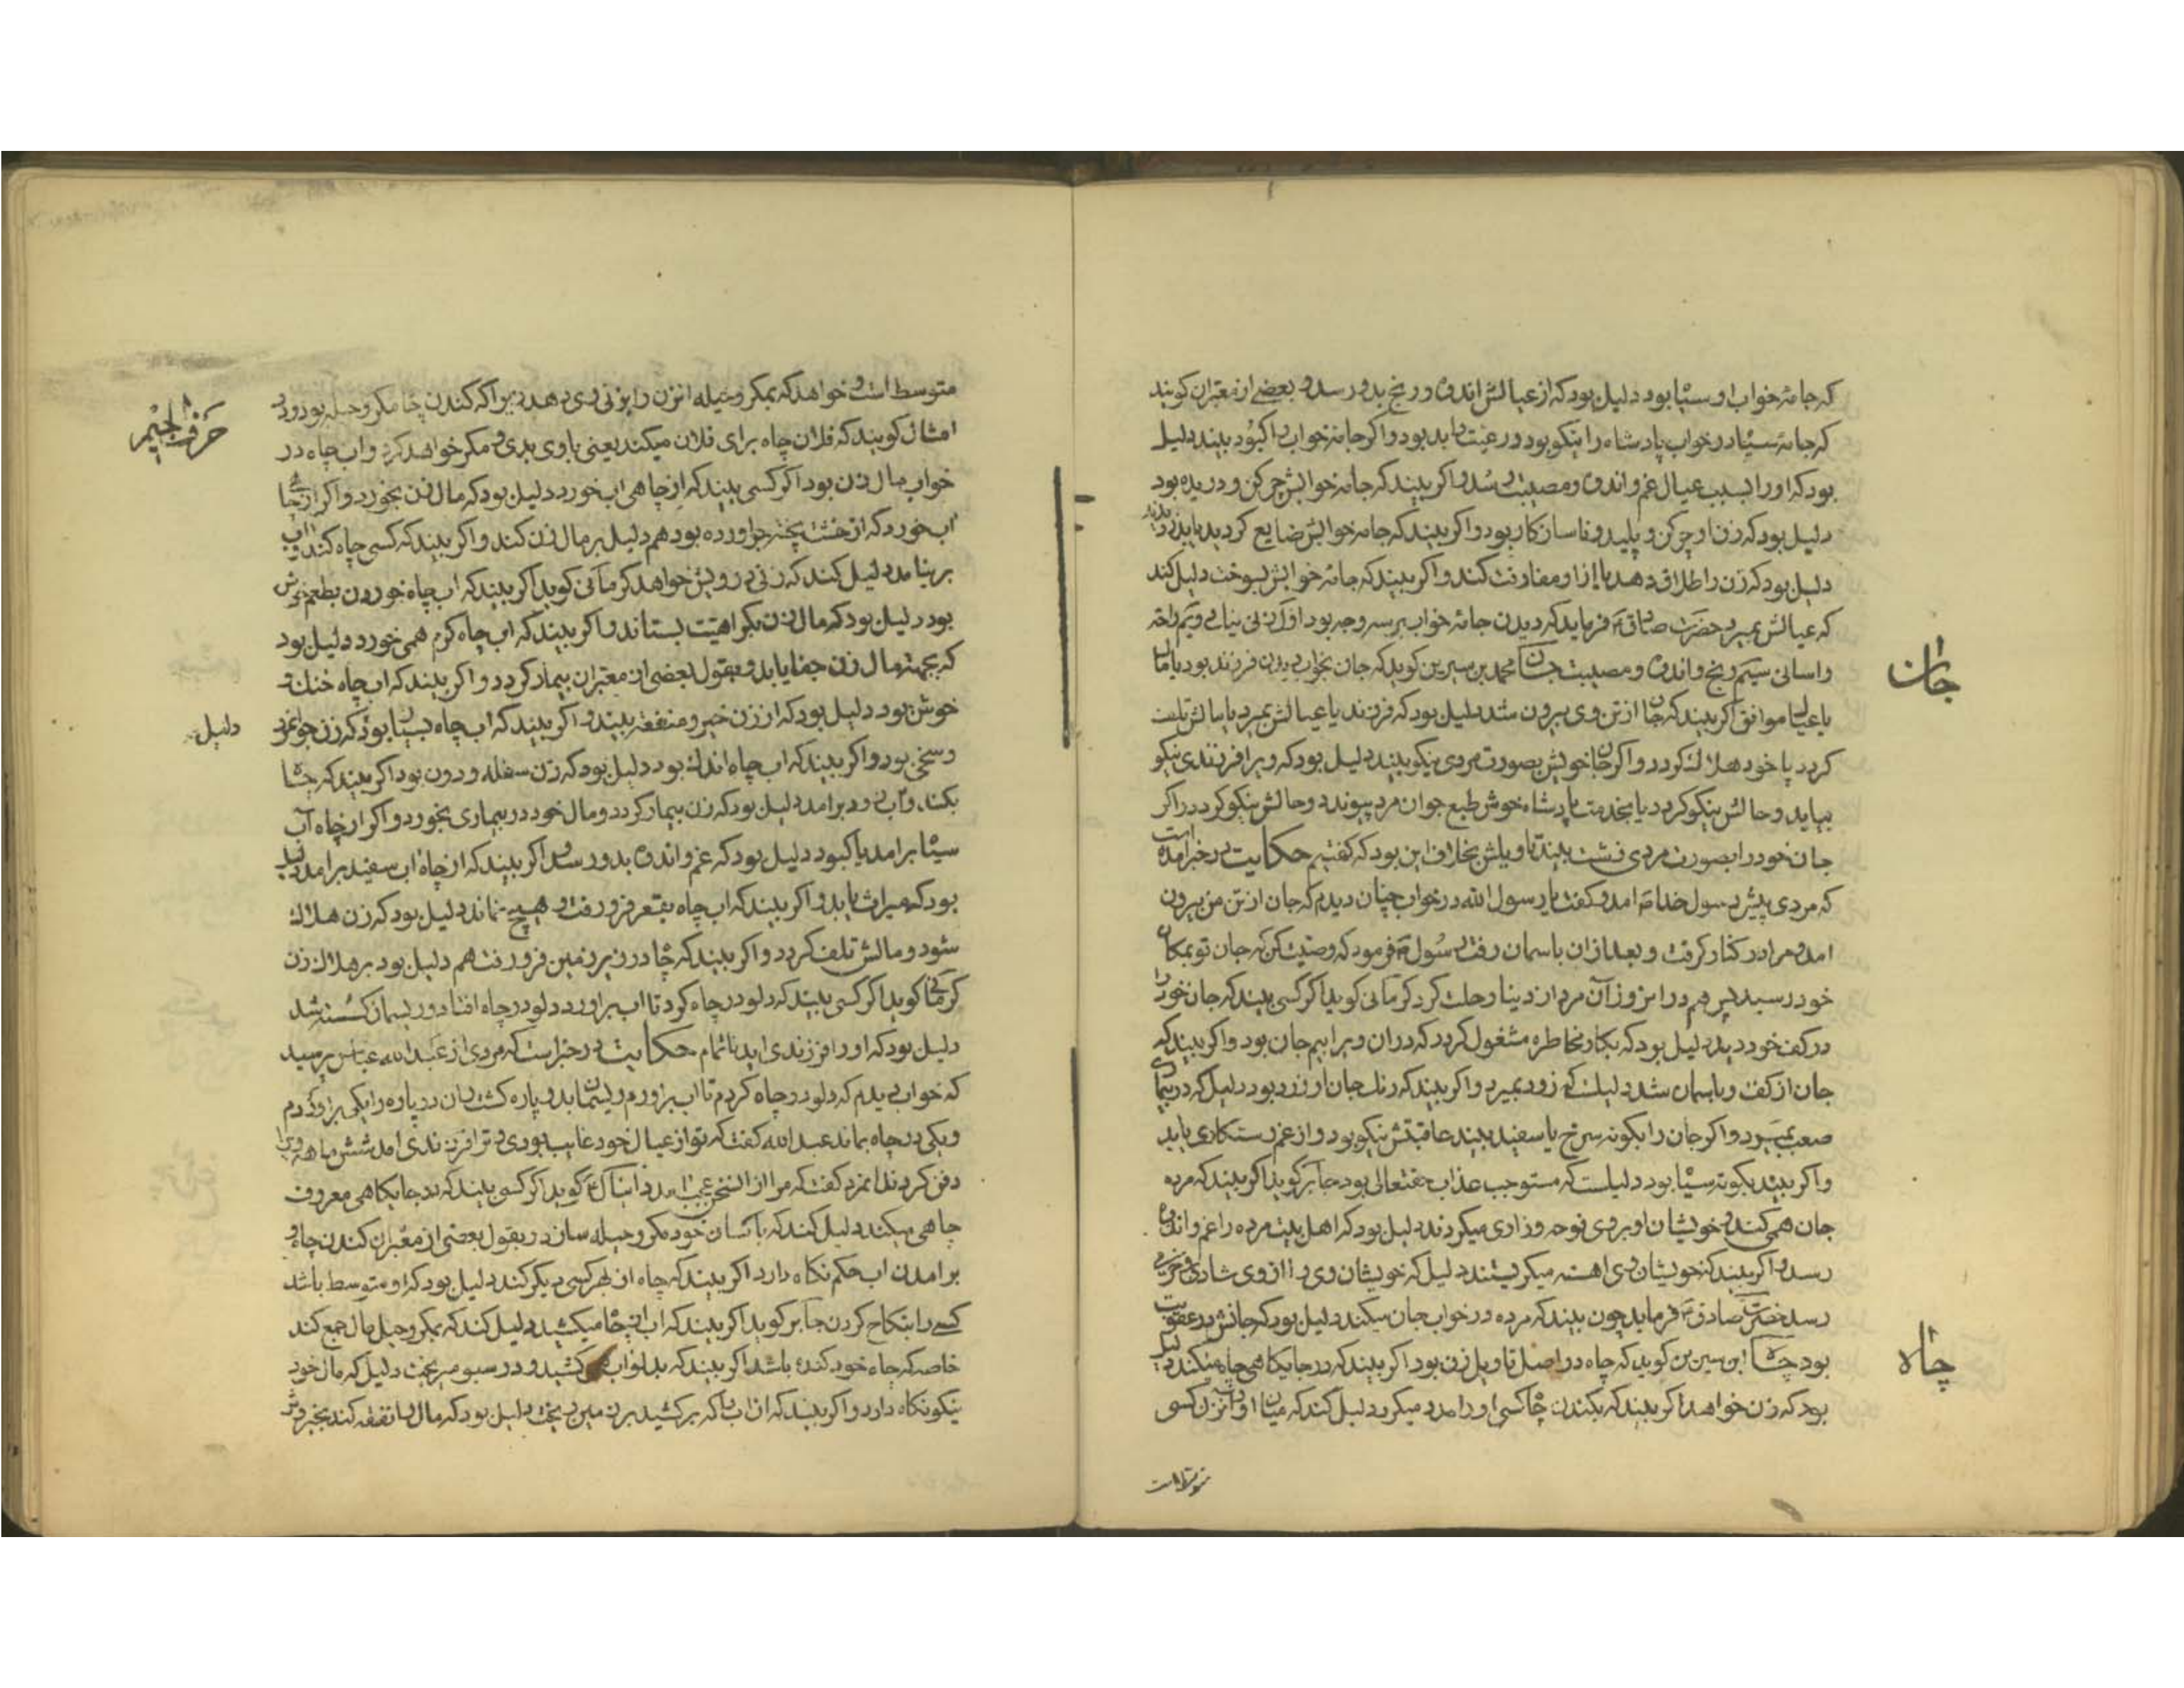 که جامهٔ خواب او سیاه بود دلیل بود که از عیالش اندوه و رنج بدو رسد و بعضے از معبّران کویند
که جامهٔ سیاه در خواب پادشاه را نیکو بود و رعیت را بد بود واکر جامهٔ خواب را کبود بیند دلیل
بود که او را بسبب عیال غم و اندوه و مصیبت رسد واکر بیند که جامهٔ خوابش چرکن و دریده بود
دلیل بود که زن او چرکن و پلید و ناسازکار بود واکر بیند که جامهٔ خوابش ضایع کردید یا بدزدیدند
دلیل بود که زن را طلاق دهد یا از او مفارقت کند واکر بیند که جامهٔ خوابش بسوخت دلیل کند
که عیالش بمیرد حضرت صادق ع فرماید که دیدن جامهٔ خواب بر سه وجه بود اوّل زن دویّم راحة
واسانی سیّم رنج و اندوه و مصیبت جان محمد بن سیرین کوید که جان بخواب دیدن فرزند بود یا مال
یا عیال موافق اکر بیند که جان از تن وی بیرون شد دلیل بود که فرزند یا عیالش بمیرد یا مالش تلف
کردد یا خود هلاك کردد واکر جان خویش بصورت مردی نیکو بیند دلیل بود که ویرا فرزندی نیکو
بیاید و حالش نیکو کردد یا بخدمت پادشاه خوش طبع جوانمرد پیوندد و حالش نیکو کردد واکر
جان خود را بصورت مردی زشت بیند تاویلش بخلاف این بود که کفتیم حکایت در خبر آمده است
که مردی پیش رسول خدا ص امد و کفت یا رسول الله در خواب چنان دیدم که جان از تن من بیرون
امد و مرا در کنار کرفت و بعد از ان باسمان رفت رسول ص فرمود که وصیت کن که جان تو بمکان
خود رسید پس هم در ان روز آن مرد از دنیا رحلت کرد کرمانی کوید اکر کسی بیند که جان خود را
در کف خود دید دلیل بود که بکار مخاطره مشغول کردد که در ان ویرا بیم جان بود واکر بیند که
جان از کف وی باسمان شد دلیلست که زود بمیرد واکر بیند که رنك جان او زرد بود دلیل که در بیماری
صعب بمیرد واکر جان را بکونه سرخ یا سفید بیند عاقبتش نیکو بود و از غم رستکاری یابد
واکر بیند بکونه سیاه بود دلیلست که مستوجب عذاب حقتعالی بود جابر کوید اکر بیند که مرده
جان همی کند و خویشان او بروی نوحه و زاری میکردند دلیل بود که اهل بیت مرده را غم و اندوه
رسد واکر بیند که خویشان وی اهسته میکریستند دلیل که خویشان وی را از وی شادی و خرمی
رسد حضرت صادق ع فرماید چون بیند که مرده در خواب جان میکند دلیل بود که جانش در عقوبت
بود چاه ابن سیرین کوید که چاه در اصل تاویل زن بود اکر بیند که در جایکاهی چاه میکند دلیل
بود که زن خواهد اکر بیند که بکندن چاه کسی او را مدد میکرد دلیل کند که میان او و آن زن کسی
جان
چاه
متوسط است
حرف الجیم
متوسط است و خواهد که بمکر و حیله انزن را بزنی وی دهد زیرا که کندن چاه مکر و حیله بود و در
امثال کویند که فلان چاه برای فلان میکند یعنی با وی بدی و مکر خواهد کرد واب چاه در
خواب مال زن بود اکر کسی بیند که از چاهی اب خورد دلیل بود که مال زن بخورد واکر از چاهی
اب خورد که از خشت پخته براورده بود هم دلیل بر مال زن کند واکر بیند که کسی چاه کند واب
برنیامد دلیل کند که زنی درویش خواهد کرمانی کوید اکر بیند که اب چاه خوردن بطعم خوش
بود دلیل بود که مال زن بکراهیت بستاند واکر بیند که اب چاه کرم همی خورد دلیل بود
که بجهة مال زن جفا یابد و بقول بعضی از معبّران بیمار کردد واکر بیند که اب چاه خنك و
خوش بود دلیل بود که از زن خیر و منفعة بیند واکر بیند که اب چاه بسیار بود که زن جوانمرد
دلیل
وسخی بود واکر بیند که اب چاه اندك بود دلیل بود که زن سفله و دون بود اکر بیند که چاه
بکند واب زود برامد دلیل بود که زن بیمار کردد و مال خود در بیماری بخورد واکر از چاه آب
سیاه برامد یا کبود دلیل بود که غم و اندوه بدو رسد واکر بیند که از چاه اب سفید برامد دلیل
بود که میراث یابد واکر بیند که اب چاه بقعر فرو رفت و هیچ نماند دلیل بود که زن هلاك
شود و مالش تلف کردد واکر بیند که چاه در زیر زمین فرو رفت هم دلیل بود بر هلاك زن
کرمانی کوید اکر کسی بیند که دلو در چاه کرد تا اب براورد دلو در چاه افتاد و ریسمان کسسته شد
دلیل بود که او را فرزندی اید ناتمام حکایت در خبر است که مردی از عبدالله عباس پرسید
که خواب دیدم که دلو در چاه کردم تا اب براورم ریسمان بدو پاره کشت ان دو پاره را یکی براوردم
ویکی در چاه بماند عبدالله کفت که تو از عیال خود غایب بودی و ترا فرزندی امد شش ماهه ویرا
دفن کردند انمرد کفت که مرا از این سخن عجب امد دانیال ع کوید اکر کسی بیند که در جایکاهی معروف
چاهی میکند دلیل کند که با کسان خود مکر و حیله سازد و بقول بعضی از معبّران کندن چاه و
برامدن اب حکم نکاه دارد اکر بیند که چاه از بهر کسی دیکر کند دلیل بود که او متوسط باشد
کسی را بنکاح کردن جابر کوید اکر بیند که اب از چاه میکشید دلیل کند که بمکر و حیل مال جمع کند
خاصه که چاه خود کنده باشد اکر بیند که بدلو اب میکشید و در سبو میریخت دلیل که مال خود
نیکو نکاه دارد واکر بیند که ان اب را که برکشید بر زمین ریخت دلیل بود که مال را نفقه کند بخیر و